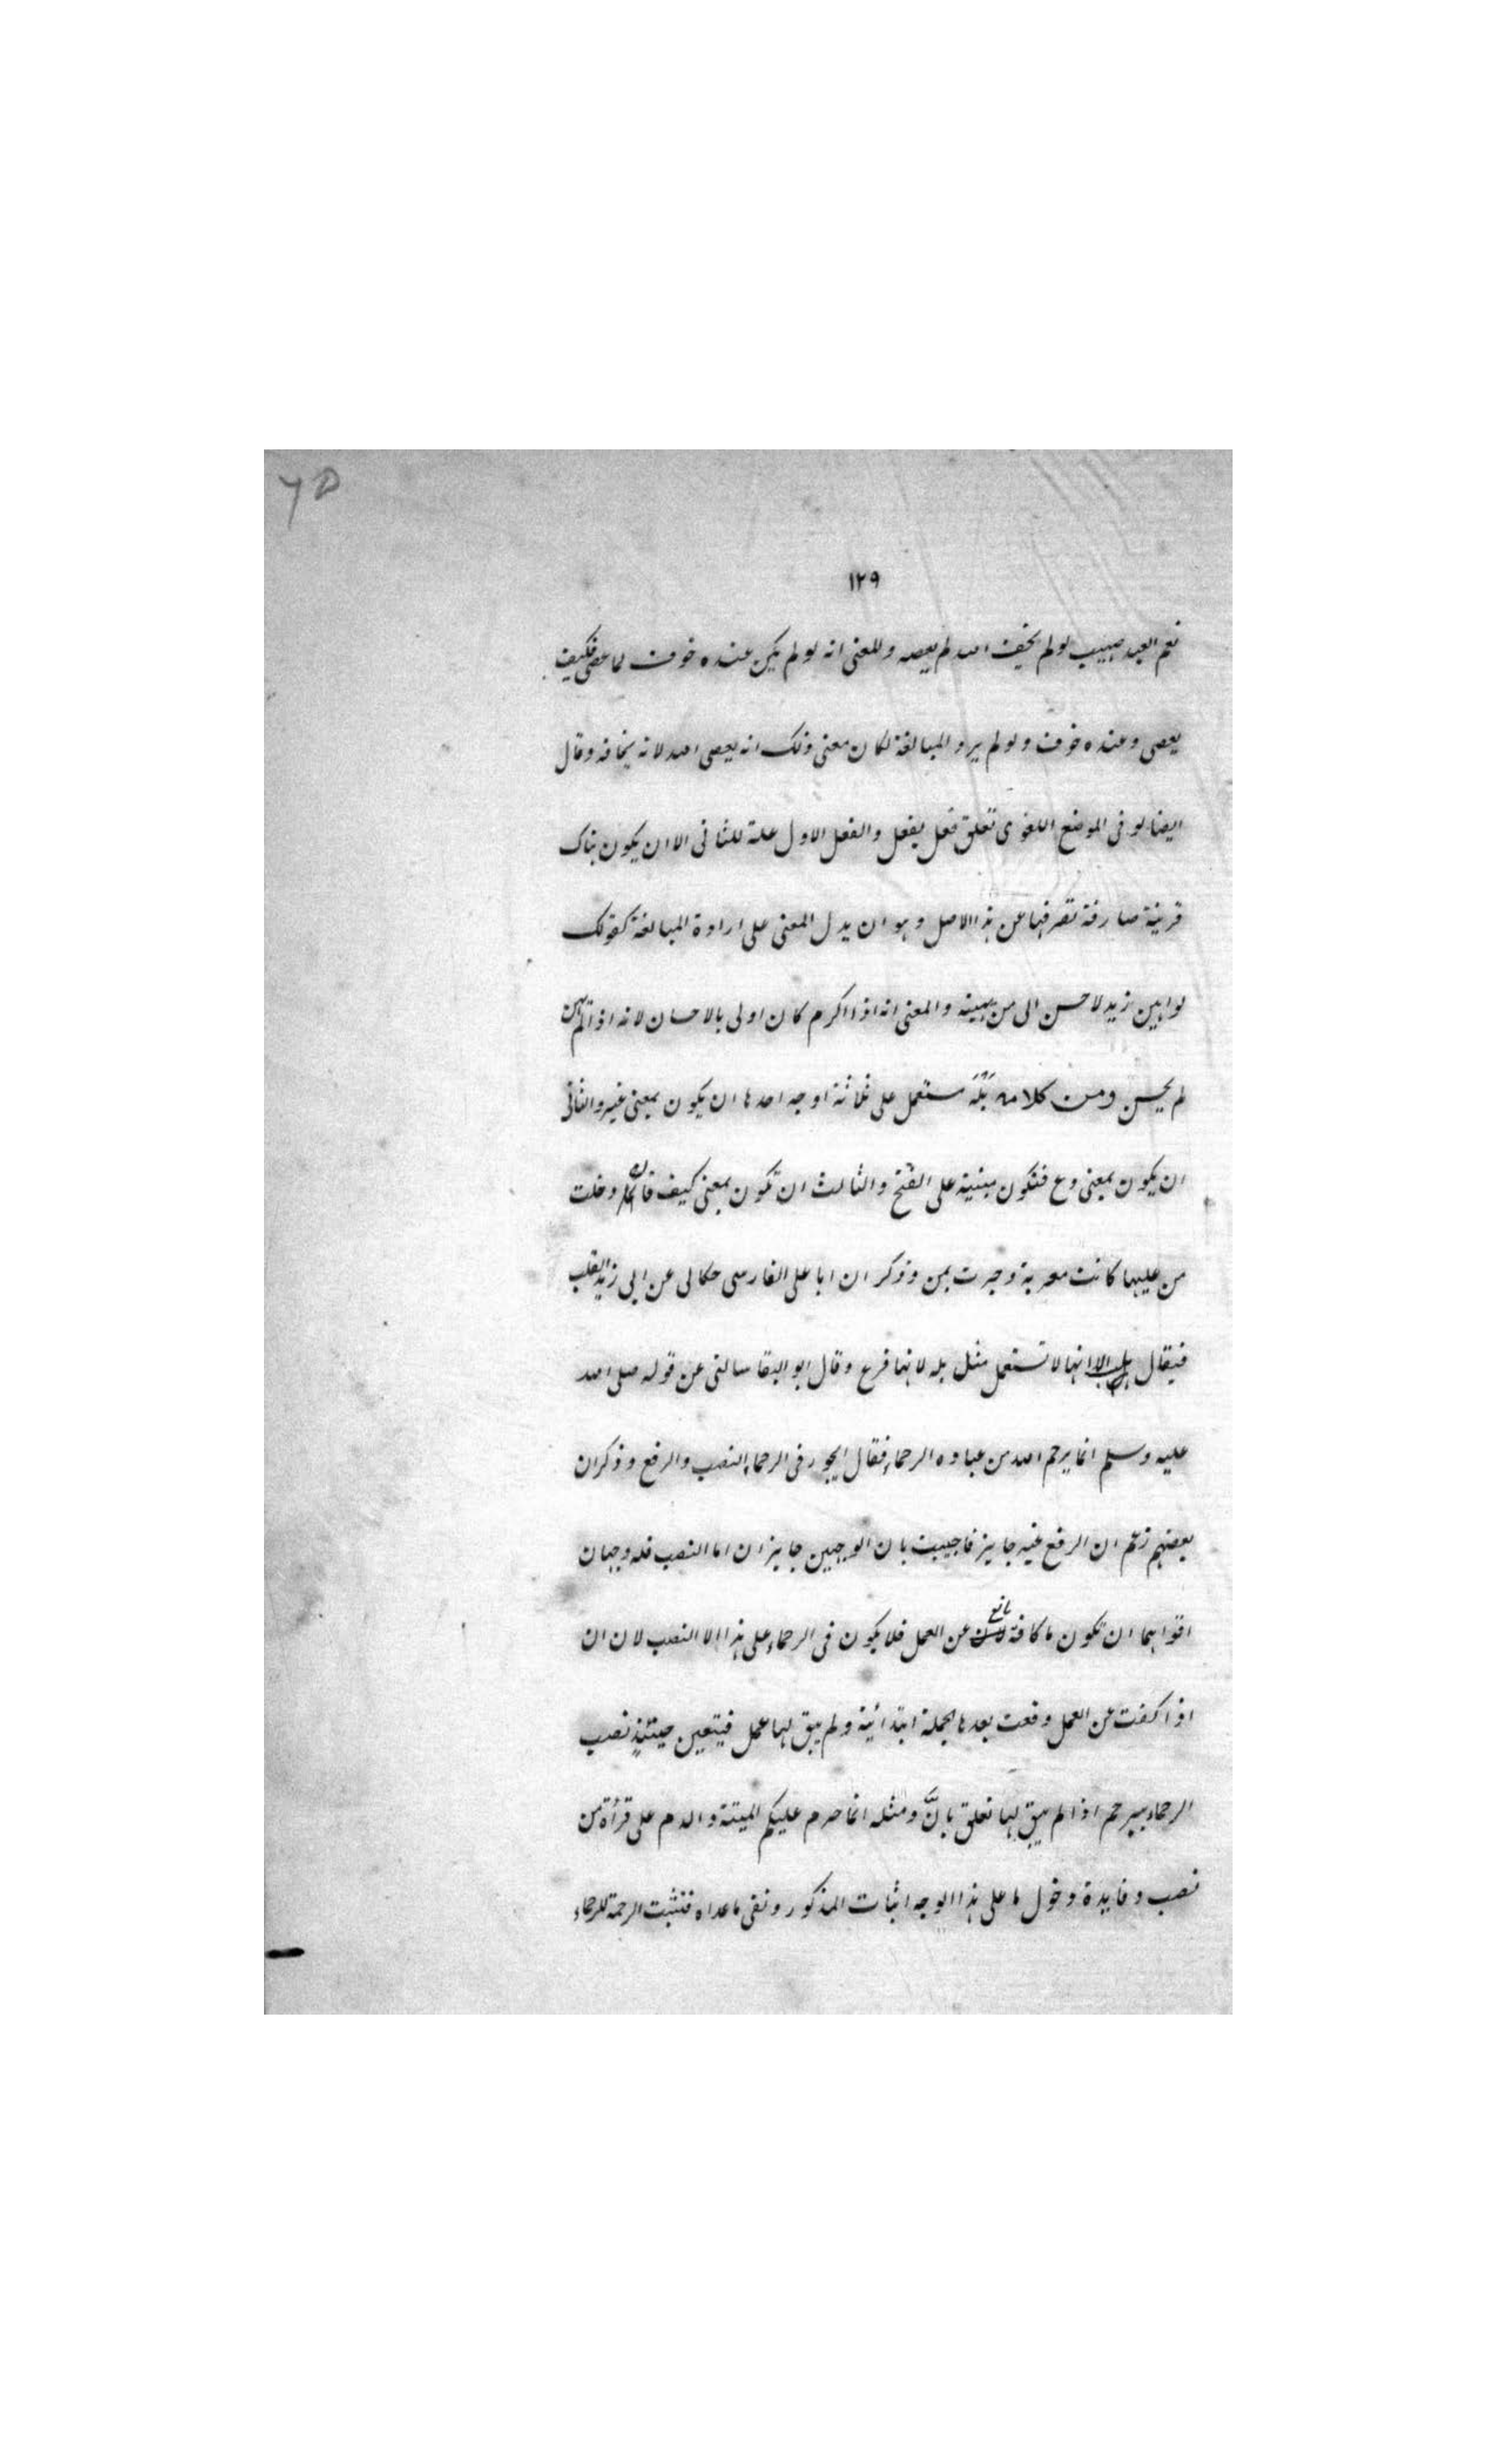 ٦٥
١٢٩
نعم العبد صهيب لو لم يخف الله لم يعصه وللمعنى انه لو لم يكن عنده خوف لما عصى فكيف
يعصى وعنده خوف ولو لم يرد المبالغة لكان معنى ذلك انه يعصى الله لانه يخافه وقال
ايضا لو فى الموضع اللغوى تعلق فعل بفعل والفعل الاول علة للثانى الا ان يكون هناك
قرينة صارفة تصرفها عن هذا الاصل وهو ان يدل المعنى على ارادة المبالغة كقولك
لو اهين زيد لاحسن الى من يهينه والمعنى انه اذا اكرم كان اولى بالاحسان لانه اذا لم يهن
لم يحسن ومن كلامه بَلْهَ ستعمل على ثلاثة اوجه احدها ان يكون بمعنى غير والثانى
ان يكون بمعنى دع فتكون مبنية على الفتح والثالث ان تكون بمعنى كيف فان دخلت
من عليها كانت معربة وجرت بمن وذكر ان ابا على الفارسى حكا لى عن ابى زيد القلب
فيقال الا انها لا تستعمل مثل بله لانها فرع وقال ابو البقا سالنى عن قوله صلى الله
عليه وسلم انما يرحم الله من عباده الرحماء فقال ايجوز فى الرحماء النصب والرفع وذكر ان
بعضهم زعم ان الرفع غير جايز فاجيبت بان الوجهين جايزان اما النصب فله وجهان
اقواهما ان تكون ما كافة مانع عن العمل فلا يكون فى الرحماء على هذا الا النصب لان ان
اذا كفت عن العمل وقعت بعدها لجملة ابتدائية ولم يبق لها عمل فيتعين حينئذٍ نصب
الرحماء بيرحم اذا لم يبق لها تعلق بانَّ ومثله انما حرم عليكم الميتة والدم على قرأة من
نصب وفايدة دخول ما على هذا الوجه اثبات المذكور ونفى ما عداه فتثبت الرحمة للرحماء